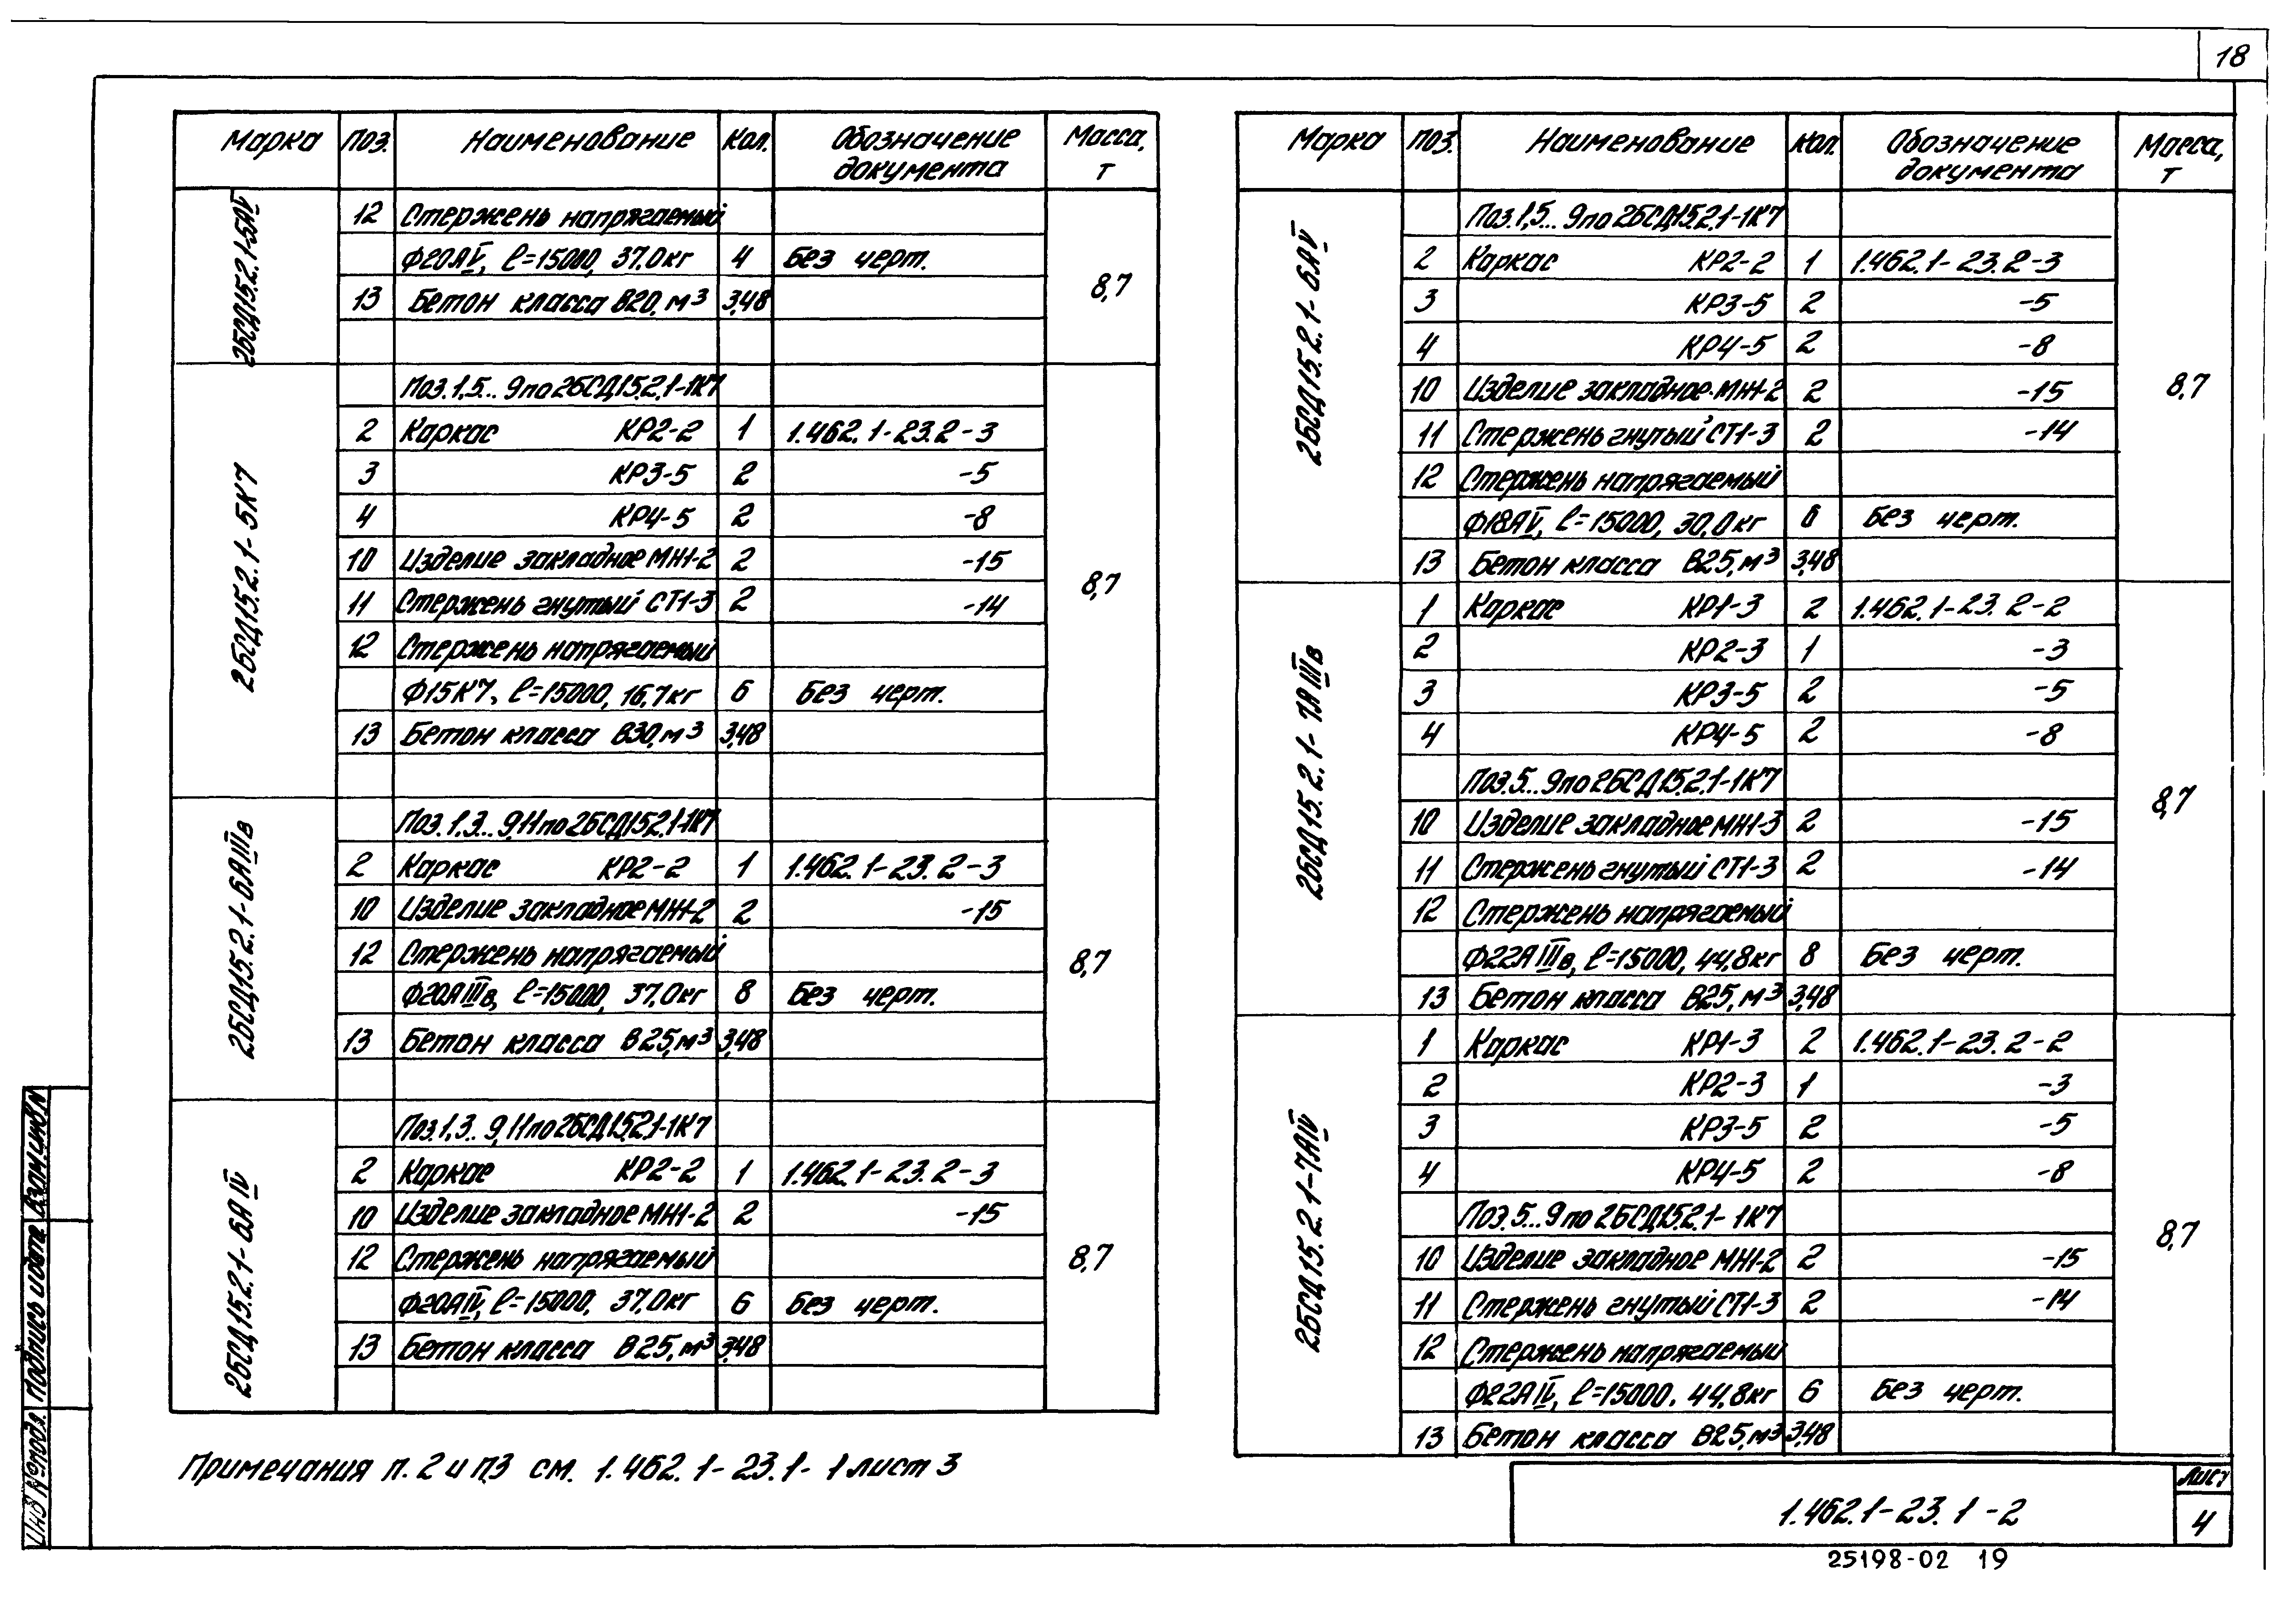 18
Марка Поз. Наименование Кол. Обозначение документа Масса, т
2БСД15.2.1-5АV
12 Стержень напрягаемый
Ф20АV, ℓ=15000, 37.0кг 4 Без черт.
13 Бетон класса В20, м³ 3,48
8,7
2БСД15.2.1-5К7
Поз.1,5...9 по 2БСД15.2.1-1К7
2 Каркас КР2-2 1 1.462.1-23.2-3
3 КР3-5 2 -5
4 КР4-5 2 -8
10 Изделие закладное МН1-2 2 -15
11 Стержень гнутый СТ1-3 2 -14
12 Стержень напрягаемый
Ф15К7, ℓ=15000, 16,7кг 6 Без черт.
13 Бетон класса В30, м³ 3,48
8,7
2БСД15.2.1-6АIIIв
Поз.1,3...9,11 по 2БСД15.2.1-1К7
2 Каркас КР2-2 1 1.462.1-23.2-3
10 Изделие закладное МН1-2 2 -15
12 Стержень напрягаемый
Ф20АIIIв, ℓ=15000, 37.0кг 8 Без черт.
13 Бетон класса В25, м³ 3,48
8,7
2БСД15.2.1-6АIV
Поз.1,3...9,11 по 2БСД15.2.1-1К7
2 Каркас КР2-2 1 1.462.1-23.2-3
10 Изделие закладное МН1-2 2 -15
12 Стержень напрягаемый
Ф20АIV, ℓ=15000, 37.0кг 6 Без черт.
13 Бетон класса В25, м³ 3,48
8,7
Примечания п. 2 и п.3 см. 1.462.1-23.1-1 лист 3
Марка Поз. Наименование Кол. Обозначение документа Масса, т
2БСД15.2.1-6АV
Поз.1,5...9 по 2БСД15.2.1-1К7
2 Каркас КР2-2 1 1.462.1-23.2-3
3 КР3-5 2 -5
4 КР4-5 2 -8
10 Изделие закладное МН1-2 2 -15
11 Стержень гнутый СТ1-3 2 -14
12 Стержень напрягаемый
Ф18АV, ℓ=15000, 30,0кг 6 Без черт.
13 Бетон класса В25, м³ 3,48
8,7
2БСД15.2.1-7АIIIв
1 Каркас КР1-3 2 1.462.1-23.2-2
2 КР2-3 1 -3
3 КР3-5 2 -5
4 КР4-5 2 -8
Поз.5...9 по 2БСД15.2.1-1К7
10 Изделие закладное МН1-3 2 -15
11 Стержень гнутый СТ1-3 2 -14
12 Стержень напрягаемый
Ф22АIIIв, ℓ=15000, 44,8кг 8 Без черт.
13 Бетон класса В25, м³ 3,48
8,7
2БСД15.2.1-7АIV
1 Каркас КР1-3 2 1.462.1-23.2-2
2 КР2-3 1 -3
3 КР3-5 2 -5
4 КР4-5 2 -8
Поз.5...9 по 2БСД15.2.1-1К7
10 Изделие закладное МН1-2 2 -15
11 Стержень гнутый СТ1-3 2 -14
12 Стержень напрягаемый
Ф22АIV, ℓ=15000, 44,8кг 6 Без черт.
13 Бетон класса В25, м³ 3,48
8,7
Инв № подл. Подпись и дата Взам.инв№
1.462.1-23.1-2
Лист
4
25198-02 19